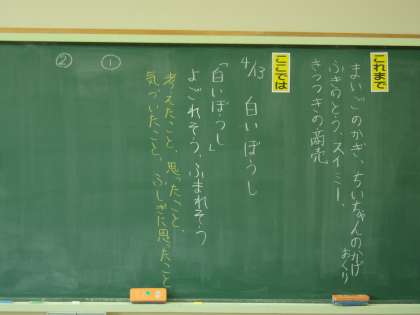 これまで
まいごのかぎ、ちいちゃんのかげ
おくり
ふきのとう、スイミー、
きつつきの商売
ここでは
4/13 白いぼうし
「白いぼうし」
よごれそう、ふまれそう
考えたこと、思ったこと、
気づいたこと、ふしぎに思ったこと
①
②